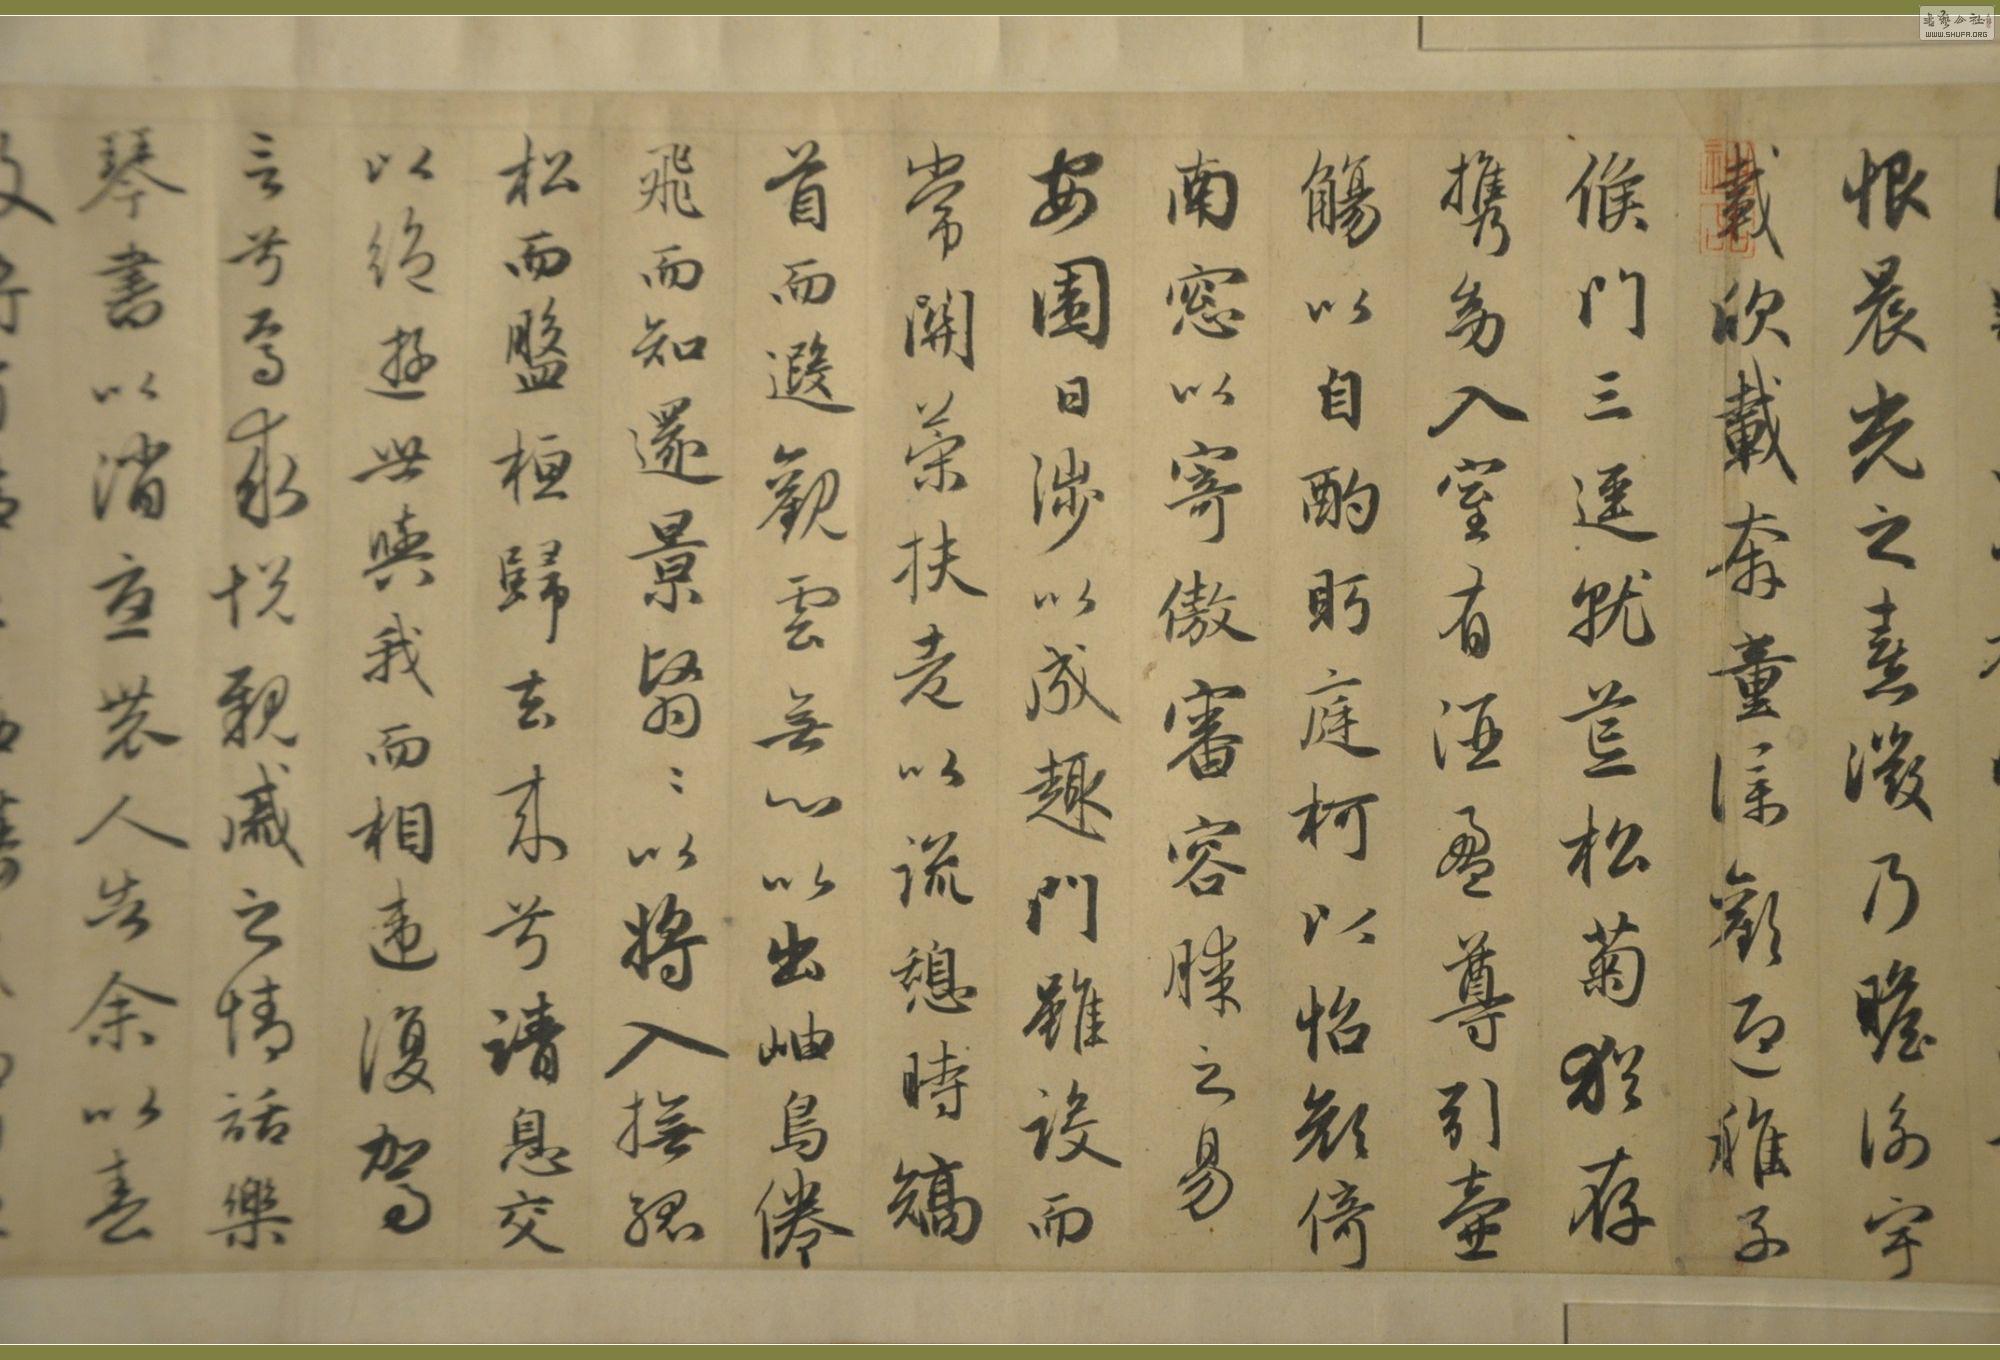 恨晨光之熹微乃瞻衡宇
載欣載奔童僕歡迎稚子
候門三逕就荒松菊猶存
携幼入室有酒盈尊引壺
觴以自酌眄庭柯以怡顔倚
南窓以寄傲審容膝之易
安園日涉以成趣門雖設而
常關策扶老以流憩時矯
首而遐觀雲無心以出岫鳥倦
飛而知還景翳〻以將入撫孤
松而盤桓歸去来兮請息交
以絶遊世與我而相違復駕
言兮焉求悦親戚之情話樂
琴書以消憂農人告余以春
书艺公社
WWW.SHUFA.ORG